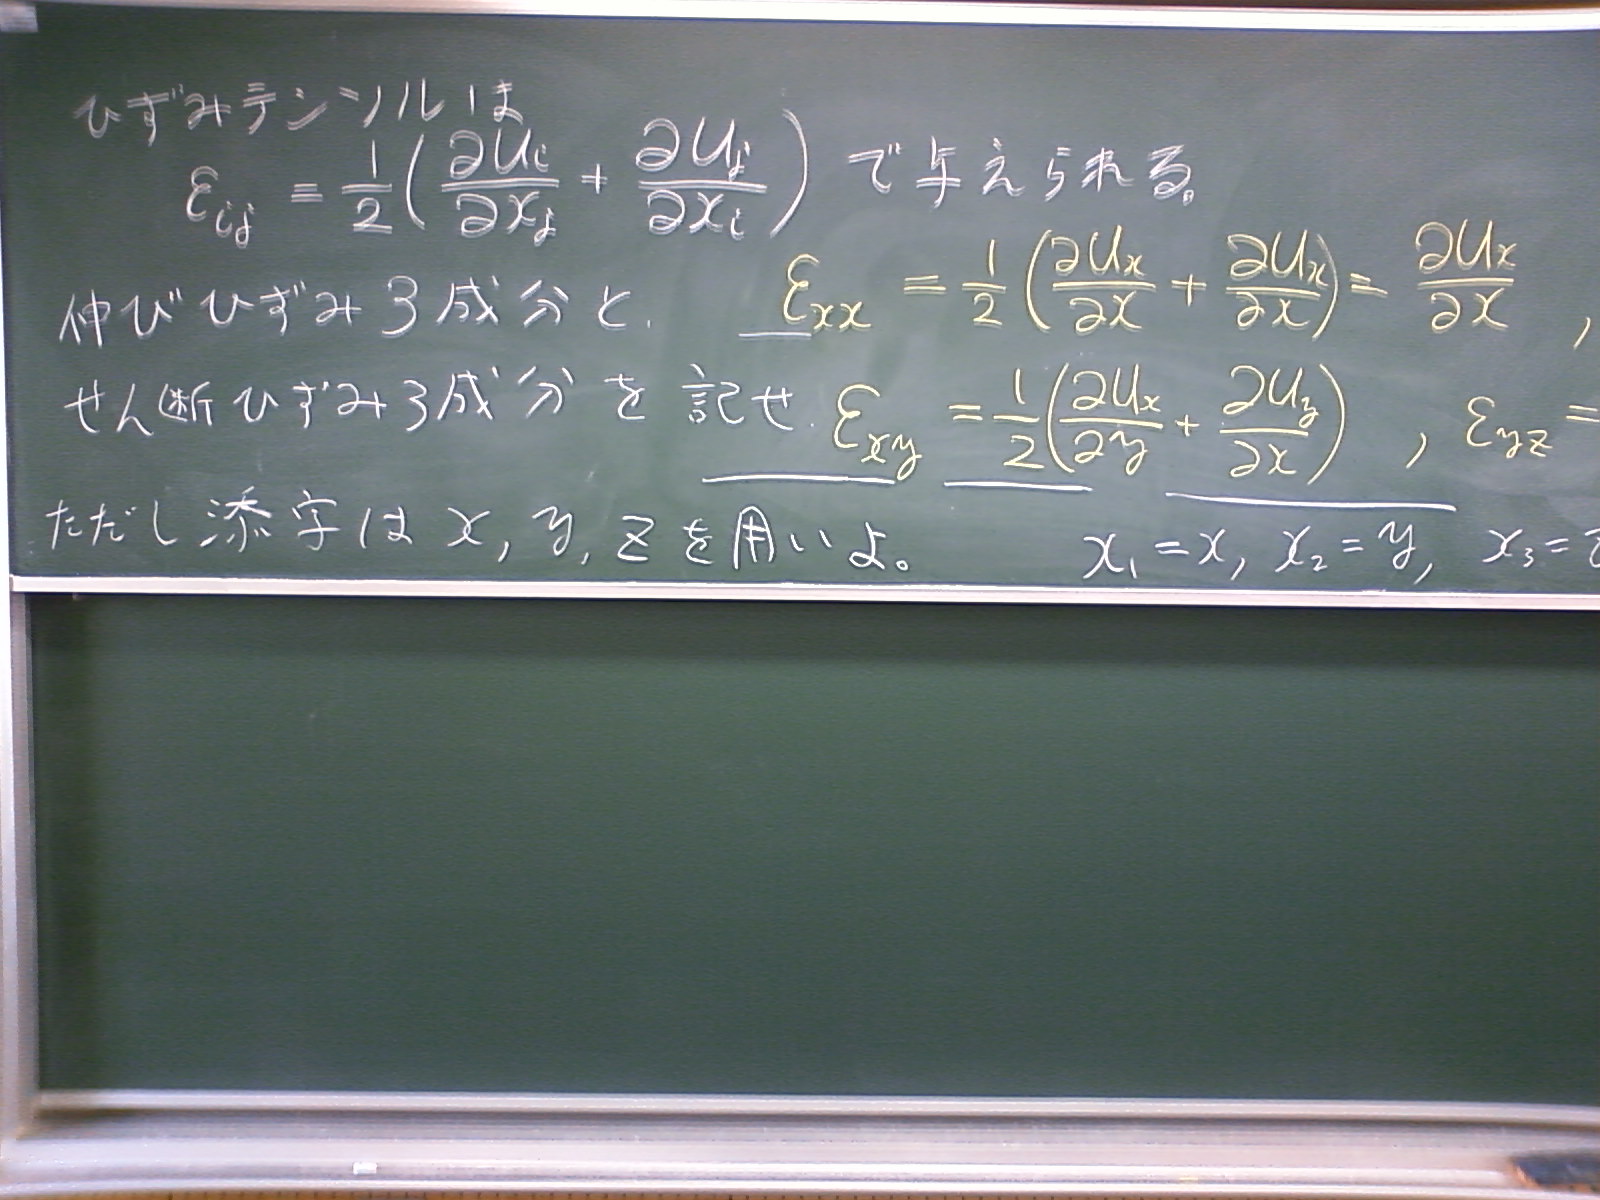 ひずみテンソルは
ε_{ij} = \frac{1}{2}(\frac{∂u_i}{∂x_j} + \frac{∂u_j}{∂x_i}) で与えられる。
伸びひずみ3成分と、 ε_{xx} = \frac{1}{2}(\frac{∂u_x}{∂x} + \frac{∂u_x}{∂x}) = \frac{∂u_x}{∂x} ,
せん断ひずみ3成分を記せ. ε_{xy} = \frac{1}{2}(\frac{∂u_x}{∂y} + \frac{∂u_y}{∂x}) , ε_{yz} =
ただし添字は x, y, z を用いよ。 x_1 = x, x_2 = y, x_3 = z